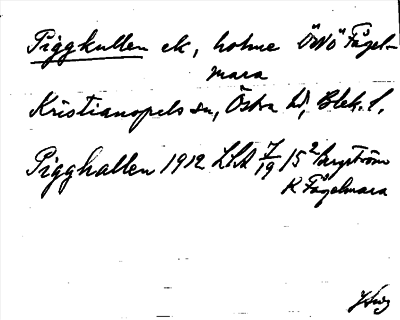 Piggkullen ek, holme ÖNÖ Fågel-
mara
Kristianopels sn, Östra hd, Blek. l.
Pigghallen 1912 LSA 7/19 15² Bergström
K Fågelmara